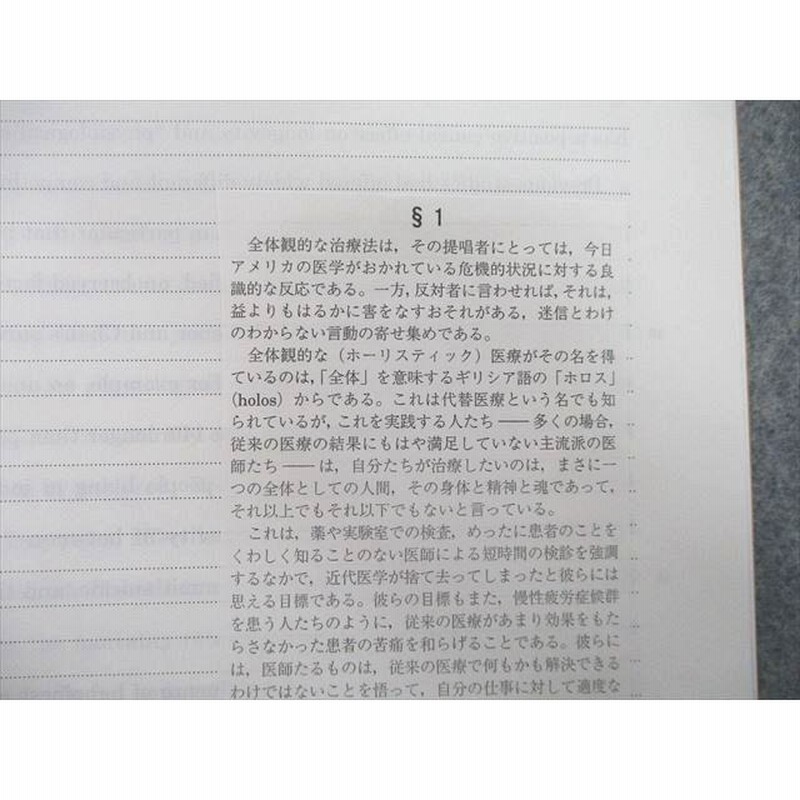 §1
全体観的な治療法は，その提唱者にとっては，今日
アメリカの医学がおかれている危機的状況に対する良
識的な反応である。一方，反対者に言わせれば，それは，
益よりもはるかに害をなすおそれがある，迷信とわけ
のわからない言動の寄せ集めである。
全体観的な（ホーリスティック）医療がその名を得
ているのは，「全体」を意味するギリシア語の「ホロス」
(holos) からである。これは代替医療という名でも知
られているが，これを実践する人たち――多くの場合，
従来の医療の結果にもはや満足していない主流派の医
師たち――は，自分たちが治療したいのは，まさに一
つの全体としての人間，その身体と精神と魂であって，
それ以上でもそれ以下でもないと言っている。
これは，薬や実験室での検査，めったに患者のことを
くわしく知ることのない医師による短時間の検診を強調
するなかで，近代医学が捨て去ってしまったと彼らには
思える目標である。彼らの目標もまた，慢性疲労症候群
を患う人たちのように，従来の医療があまり効果をもた
らさなかった患者の苦痛を和らげることである。彼らに
は，医師たるものは，従来の医療で何もかも解決できる
わけではないことを悟って，自分の仕事に対して適度な